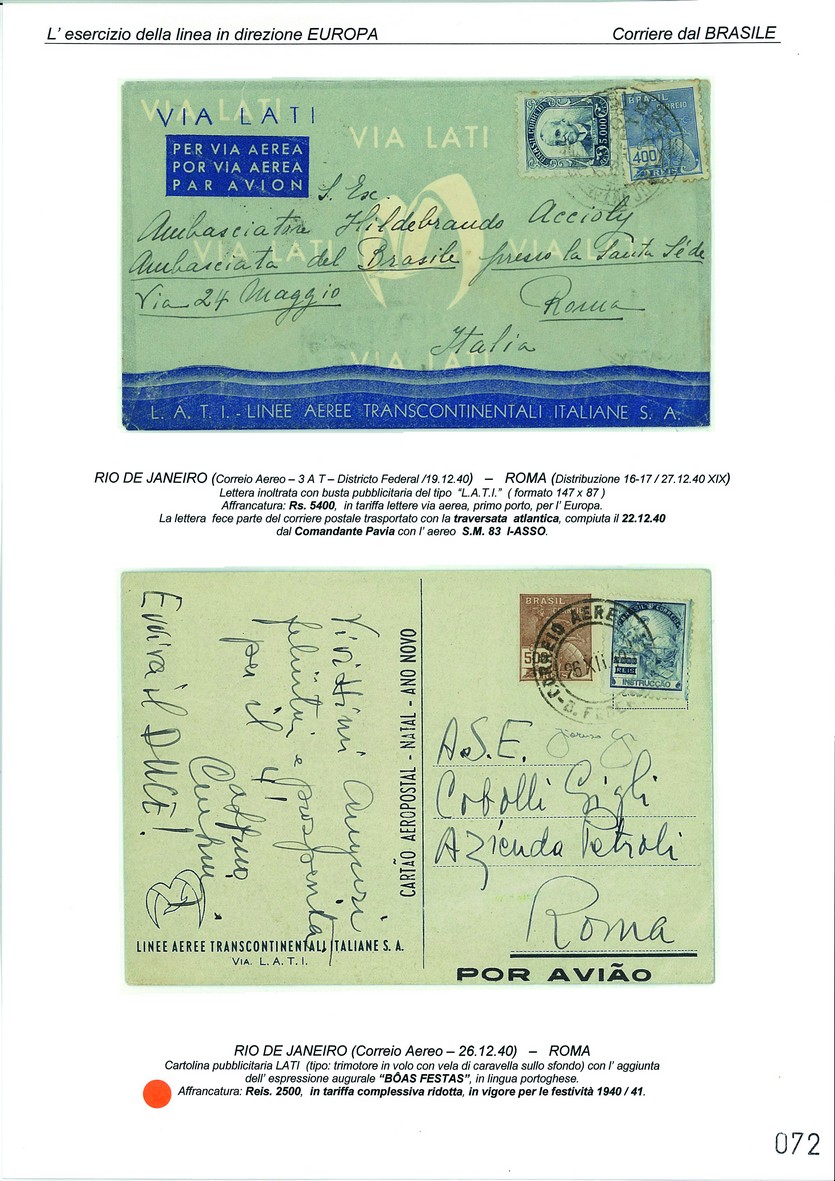 L' esercizio della linea in direzione EUROPA
Corriere dal BRASILE
VIA LATI
VIA LATI
VIA LATI
PER VIA AEREA
POR VIA AEREA
PAR AVION
BRASIL CORREIO
5.000
BRASIL
CORREIO
400
REIS
S. Exc.
Ambasciatore Hildebrando Accioly
VIA LATI
Ambasciata del Brasile presso la Santa Séde
Via 24 Maggio
Roma
Italia
VIA LATI
L. A. T. I. - LINEE AEREE TRANSCONTINENTALI ITALIANE S. A.
RIO DE JANEIRO (Correio Aereo – 3 A T – Districto Federal /19.12.40) – ROMA (Distribuzione 16-17 / 27.12.40 XIX)
Lettera inoltrata con busta pubblicitaria del tipo "L.A.T.I." ( formato 147 x 87 )
Affrancatura: Rs. 5400, in tariffa lettere via aerea, primo porto, per l' Europa.
La lettera fece parte del corriere postale trasportato con la traversata atlantica, compiuta il 22.12.40
dal Comandante Pavia con l' aereo S.M. 83 I-ASSO.
Evviva il DUCE!
Vivissimi Auguri
felicità e prosperità
per il 41
CARTÃO AEROPOSTAL - NATAL - ANO NOVO
LINEE AEREE TRANSCONTINENTALI ITALIANE S. A.
VIA. L. A. T. I.
BRASIL
500
CORREIO AEREO
26 XII 40
BRASIL CORREIO
REIS
INSTRUCÇÃO
A.S.E.
Cobolli Gigli
Azienda Petroli
Roma
POR AVIÃO
RIO DE JANEIRO (Correio Aereo – 26.12.40) – ROMA
Cartolina pubblicitaria LATI (tipo: trimotore in volo con vela di caravella sullo sfondo) con l' aggiunta
dell' espressione augurale "BÔAS FESTAS", in lingua portoghese.
Affrancatura: Reis. 2500, in tariffa complessiva ridotta, in vigore per le festività 1940 / 41.
072